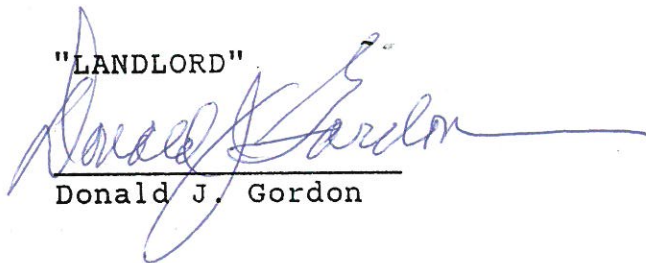 "LANDLORD"
Donald J Gordon
Donald J. Gordon